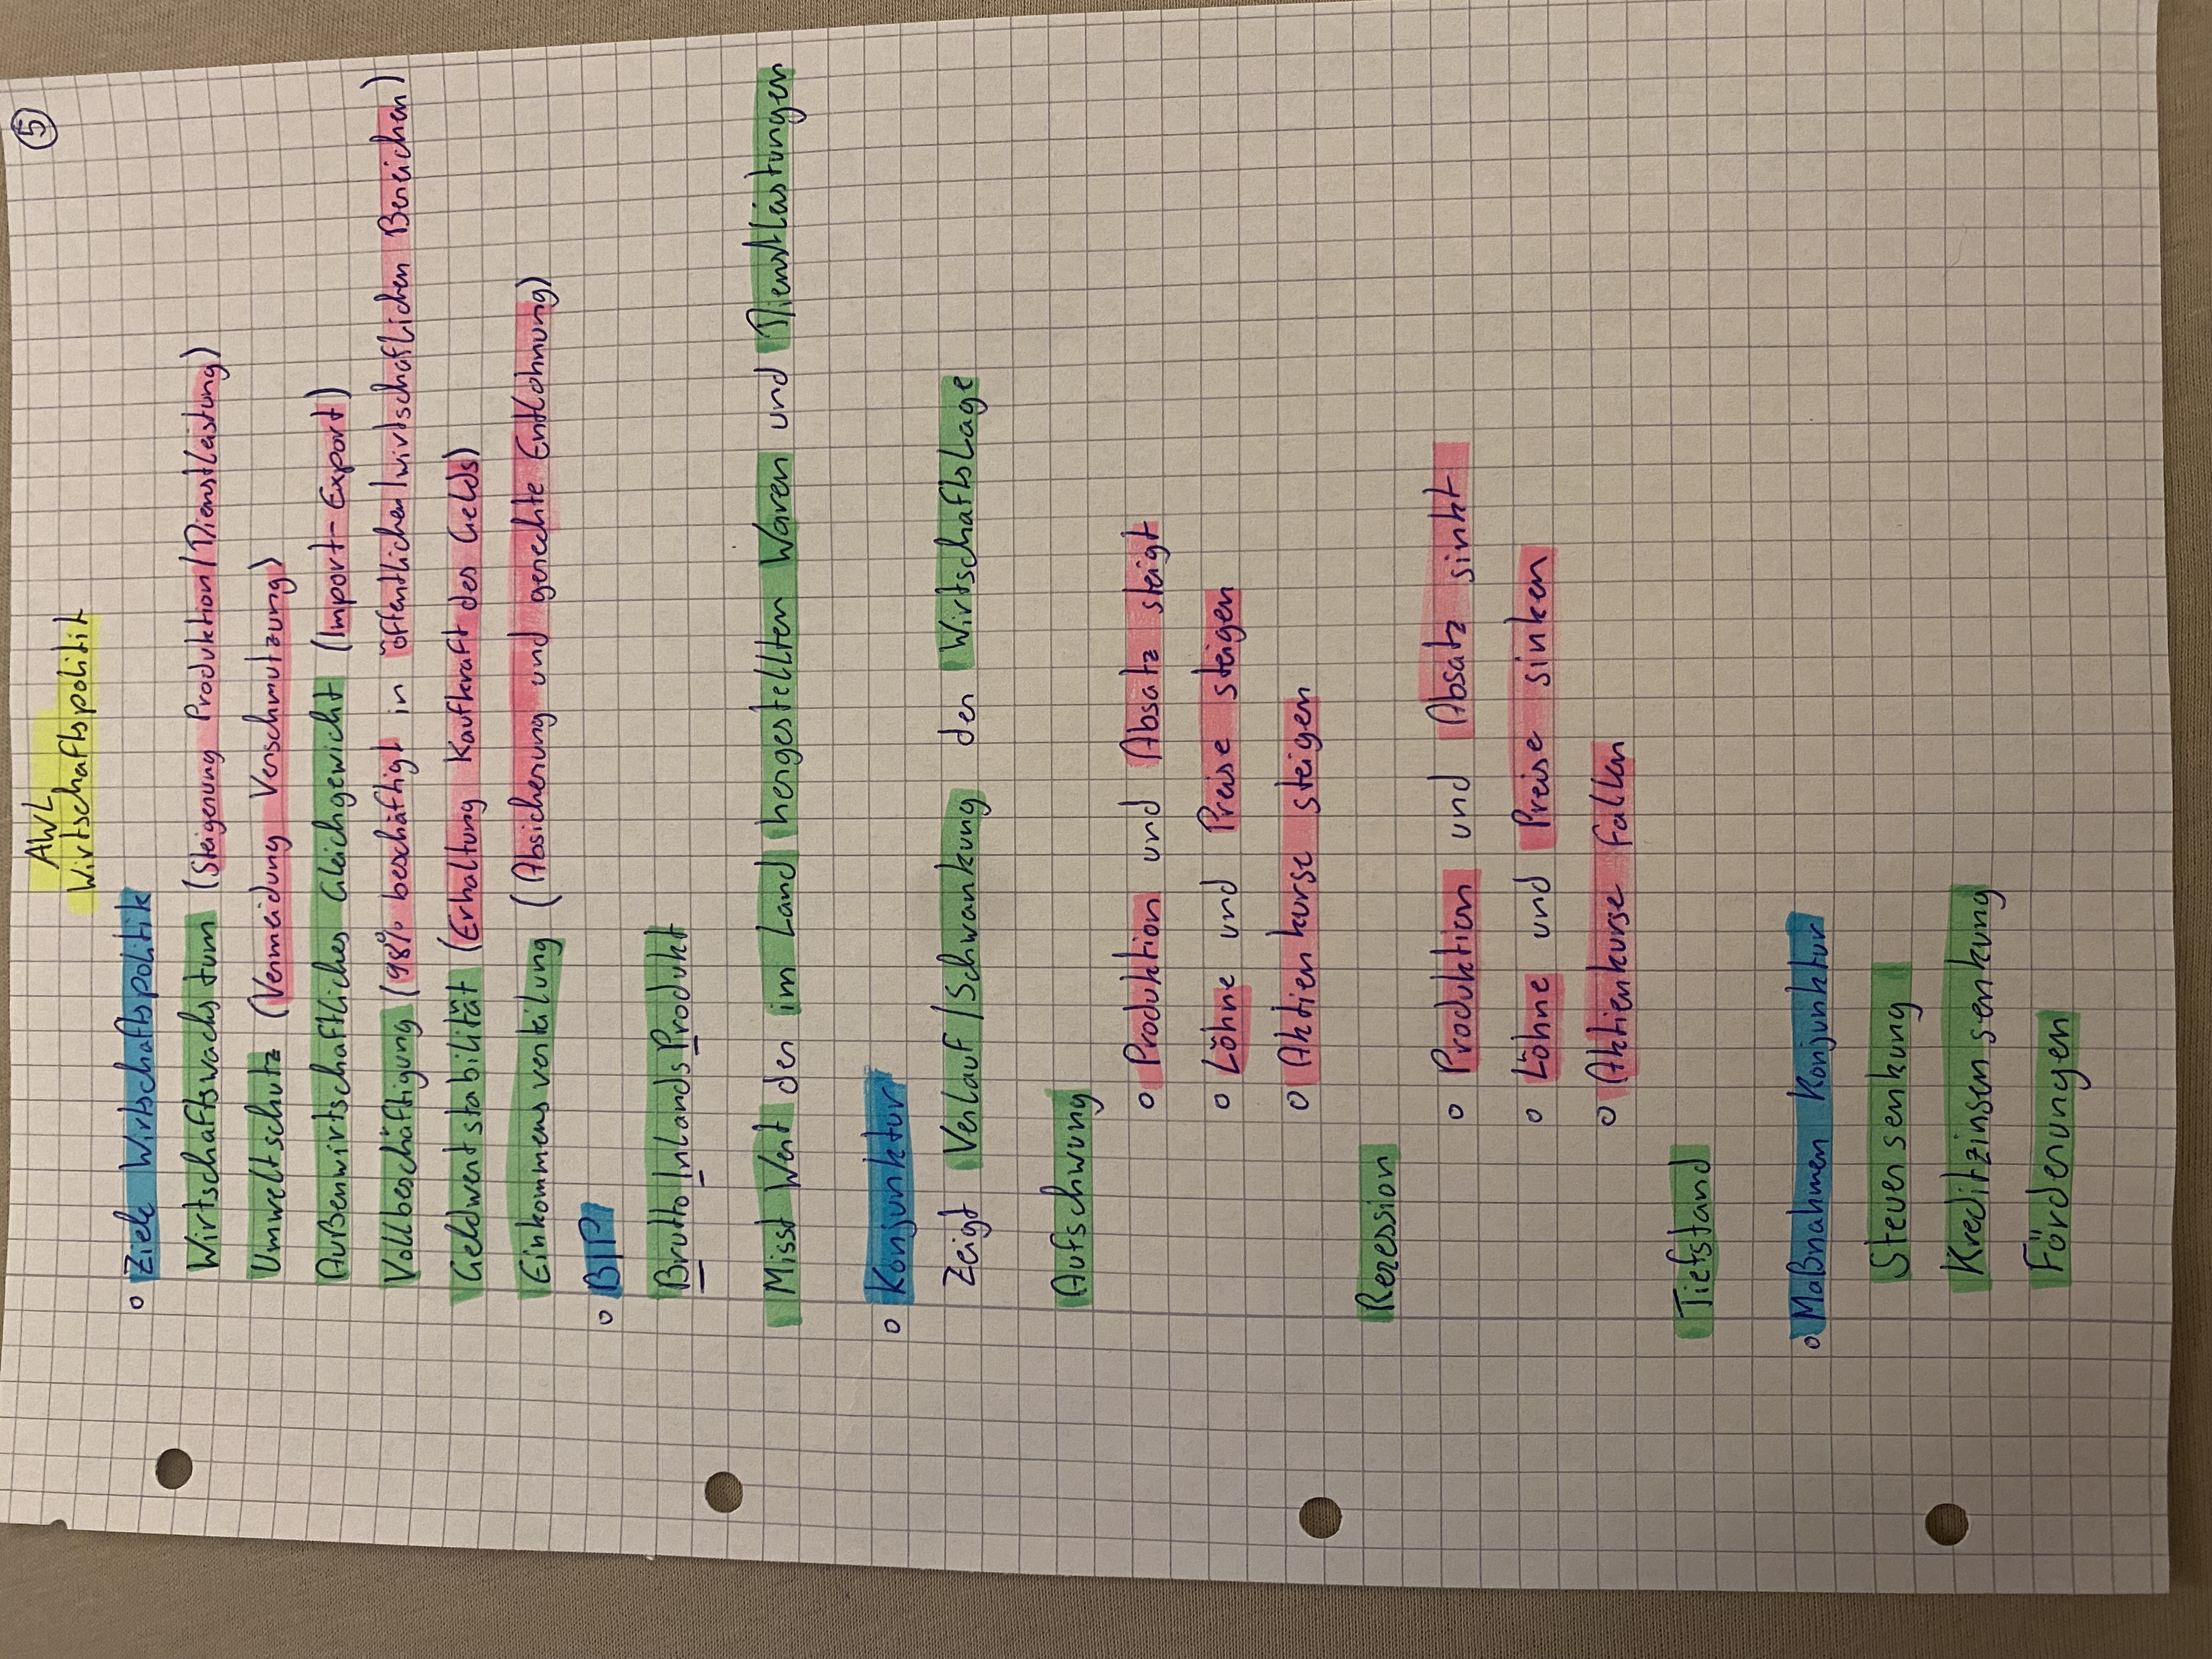 ⑤
AWL
Wirtschaftspolitik
○ Ziele Wirtschaftspolitik
Wirtschaftswachstum (Steigerung Produktion/Dienstleistung)
Umweltschutz (Vermeidung Verschmutzung)
Außenwirtschaftliches Gleichgewicht (Import-Export)
Vollbeschäftigung (98% beschäftigt in öffentlichen/wirtschaflichen Bereichen)
Geldwertstabilität (Erhaltung Kaufkraft des Gelds)
Einkommensverteilung (Absicherung und gerechte Entlohnung)
○ BIP
Brutto Inlands Produkt
Misst Wert der im Land hergestellten Waren und Dienstleistungen
○ Konjunktur
Zeigt Verlauf/Schwankung der Wirtschaftslage
Aufschwung
○ Produktion und Absatz steigt
○ Löhne und Preise steigen
○ Aktienkurse steigen
Rezession
○ Produktion und Absatz sinkt
○ Löhne und Preise sinken
○ Aktienkurse fallen
Tiefstand
○ Maßnahmen Konjunktur
Steuersenkung
Kreditzinsensenkung
Förderungen